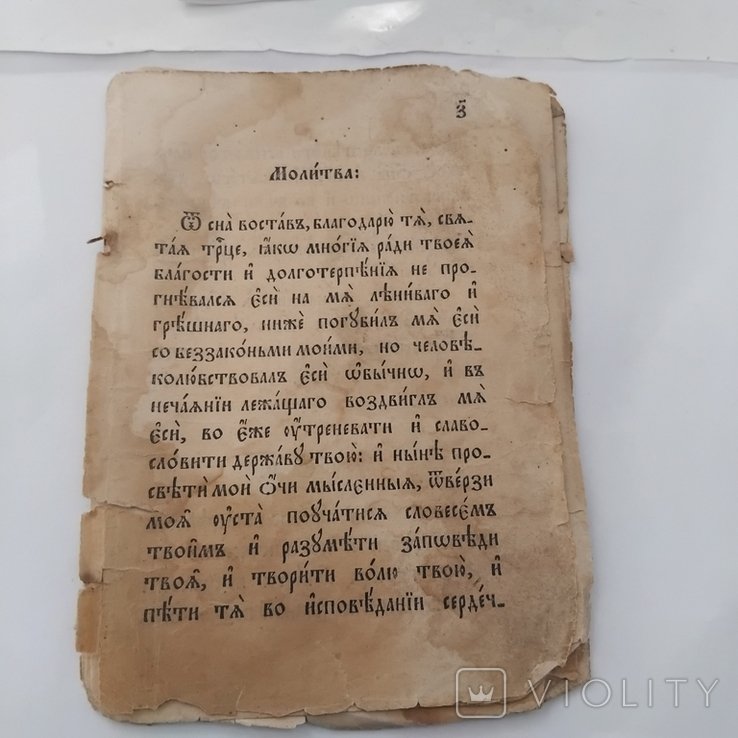 з҃
Моли́тва:
Ѿ сна̀ воста́въ, благодарю́ тѧ̀, свѧ-
та́ѧ трⷪ҇це, ꙗ҆́кѡ мно́гїѧ ра́ди твоеѧ̀
бла́гости и҆ долготерпѣ́нїѧ не про-
гнѣ́валсѧ є҆сѝ на мѧ̀ лѣни́ваго и҆
грѣ́шнаго, нижѐ погꙋби́лъ мѧ̀ є҆сѝ
со беззако́ньми мои́ми, но человѣ-
колю́бствовалъ є҆сѝ ѡ҆бы́чнѡ, и҆ въ
неча́ѧнїи лежа́щаго воздви́глъ мѧ̀
є҆сѝ, во є҆́же ᲂу҆́треневати и҆ славо-
сло́вити держа́вꙋ твою̀: и҆ ны́нѣ про-
свѣтѝ моѝ ѻ҆́чи мы́сленныѧ, ѿве́рзи
моѧ̑ ᲂу҆ста̀ поꙋча́тисѧ словесє́мъ
твои̑мъ и҆ разꙋмѣ́ти за́пѡвѣди
твоѧ̑, и҆ твори́ти во́лю твою̀, и҆
пѣ́ти тѧ̀ во и҆сповѣ́данїи серде́ч-
VIOLITY